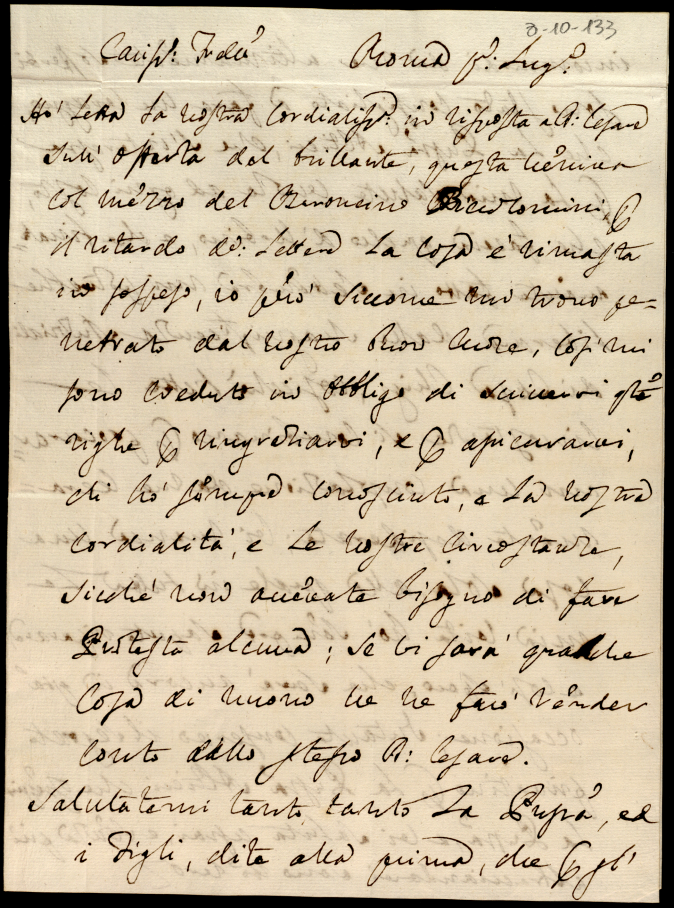 8-10-133
Cariss: Fratel Roma p: Lug:
Hò letta la vostra cordialiss: in risposta a D: Cesare
sull'offerta del brillante, questa veniva
col mezzo del Baroncino Piccolomini,
il ritardo de: Lettera la cosa è rimasta
in sospeso, io però siccome mi trovo pe=
netrato dal vostro buon cuore, così mi
sono creduto in obbligo di scrivervi q.te
righe p ringraziarvi, e p assicurarvi,
che hò sempre conosciuto, e la vostra
cordialità, e le vostre circostanze,
sicchè non avevate bisogno di fare
Protesta alcuna; se vi sarà qualche
cosa di nuovo ve ne farò render
conto dallo stesso D: Cesare.
Salutatemi tanto, tanto la Pupa, ed
i Figli, dite alla prima, che p